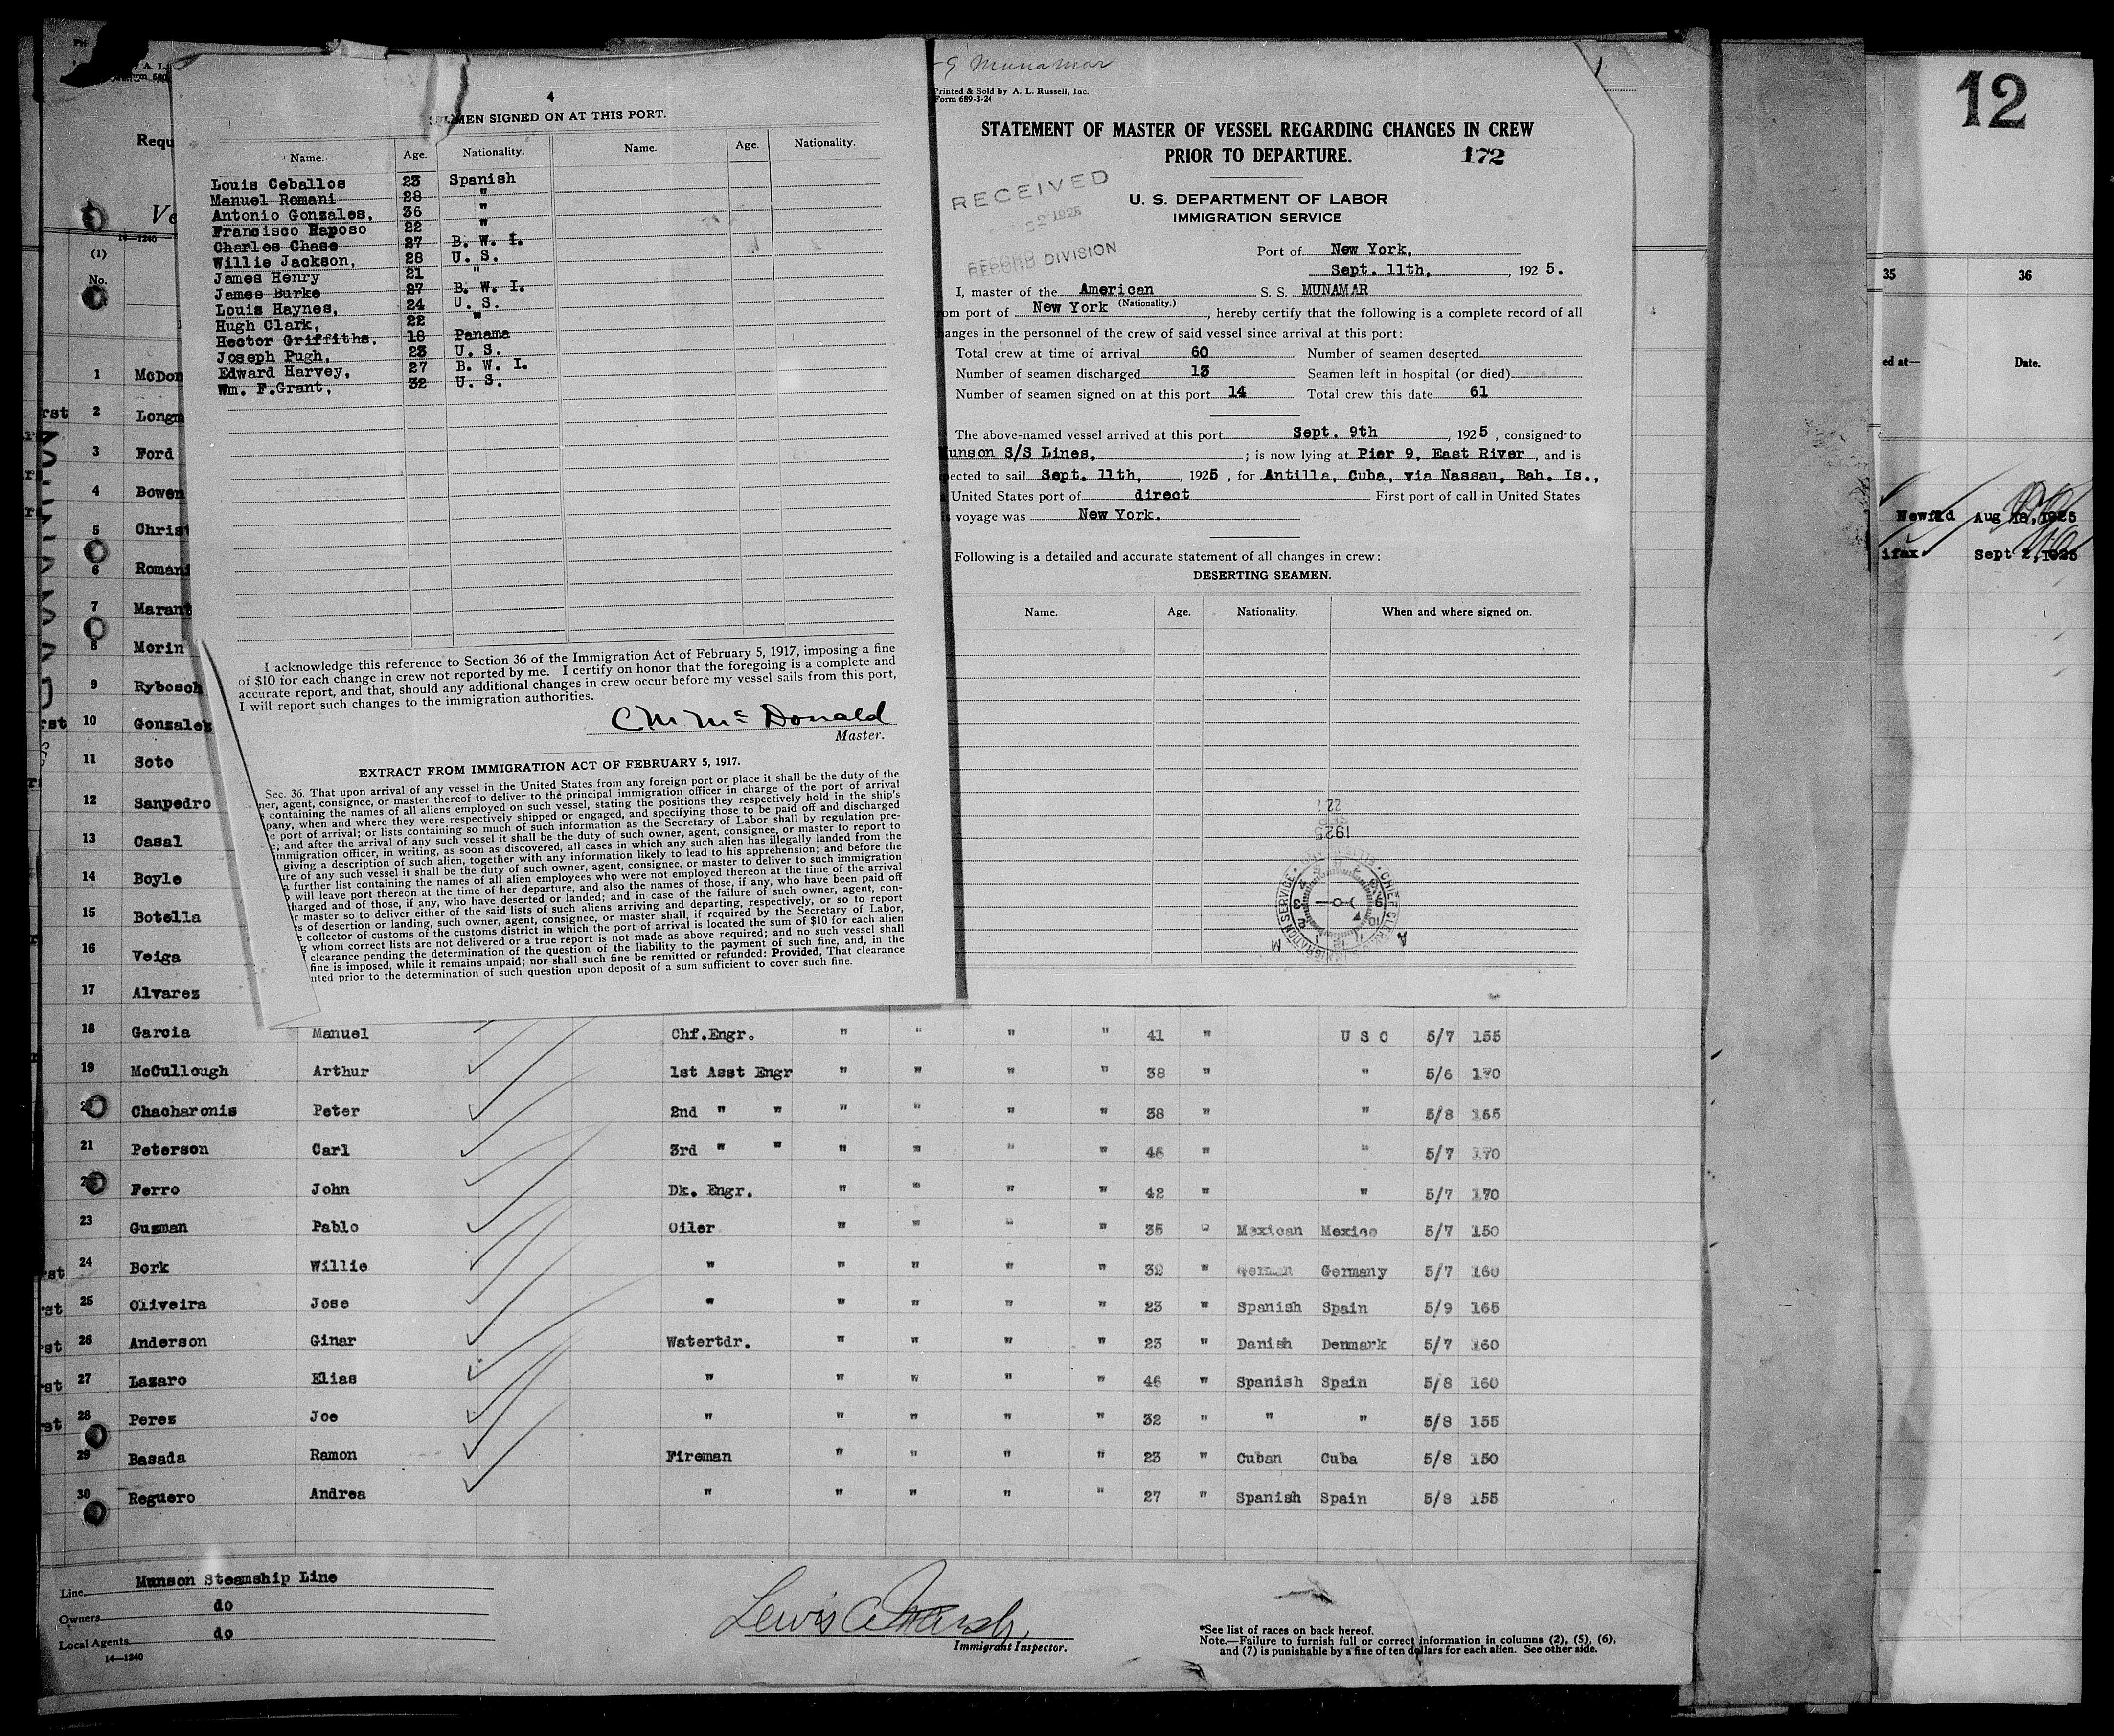 4
MEN SIGNED ON AT THIS PORT.
Name. Age. Nationality. Name. Age. Nationality.
Louis Ceballos 23 Spanish
Manuel Romani 28 "
Antonio Gonzales, 36 "
Francisco Raposo 22 "
Charles Chase 27 B. W. I.
Willie Jackson, 28 U. S.
James Henry 21 "
James Burke 27 B. W. I.
Louis Haynes, 24 U. S.
Hugh Clark, 22 "
Hector Griffiths, 18 Panama
Joseph Pugh, 23 U. S.
Edward Harvey, 27 B. W. I.
Wm. F.Grant, 32 U. S.
I acknowledge this reference to Section 36 of the Immigration Act of February 5, 1917, imposing a fine
of $10 for each change in crew not reported by me. I certify on honor that the foregoing is a complete and
accurate report, and that, should any additional changes in crew occur before my vessel sails from this port,
I will report such changes to the immigration authorities.
C M McDonald
Master.
EXTRACT FROM IMMIGRATION ACT OF FEBRUARY 5, 1917.
Sec. 36. That upon arrival of any vessel in the United States from any foreign port or place it shall be the duty of the
ner, agent, consignee, or master thereof to deliver to the principal immigration officer in charge of the port of arrival
containing the names of all aliens employed on such vessel, stating the positions they respectively hold in the ship's
pany, when and where they were respectively shipped or engaged, and specifying those to be paid off and discharged
port of arrival; or lists containing so much of such information as the Secretary of Labor shall by regulation pre-
; and after the arrival of any such vessel it shall be the duty of such owner, agent, consignee, or master to report to
mmigration officer, in writing, as soon as discovered, all cases in which any such alien has illegally landed from the
giving a description of such alien, together with any information likely to lead to his apprehension; and before the
ure of any such vessel it shall be the duty of such owner, agent, consignee, or master to deliver to such immigration
a further list containing the names of all alien employees who were not employed thereon at the time of the arrival
will leave port thereon at the time of her departure, and also the names of those, if any, who have been paid off
harged and of those, if any, who have deserted or landed; and in case of the failure of such owner, agent, con-
r master so to deliver either of the said lists of such aliens arriving and departing, respectively, or so to report
s of desertion or landing, such owner, agent, consignee, or master shall, if required by the Secretary of Labor,
collector of customs of the customs district in which the port of arrival is located the sum of $10 for each alien
whom correct lists are not delivered or a true report is not made as above required; and no such vessel shall
clearance pending the determination of the question of the liability to the payment of such fine, and, in the
fine is imposed, while it remains unpaid; nor shall such fine be remitted or refunded: Provided, That clearance
nted prior to the determination of such question upon deposit of a sum sufficient to cover such fine.
Munamar
Printed & Sold by A. L. Russell, Inc.
Form 689-3-24
STATEMENT OF MASTER OF VESSEL REGARDING CHANGES IN CREW
PRIOR TO DEPARTURE. 172
RECEIVED
2 1925
RECORD DIVISION
U. S. DEPARTMENT OF LABOR
IMMIGRATION SERVICE
Port of New York,
Sept. 11th, , 192 5.
I, master of the American S. S. MUNAMAR
(Nationality.)
om port of New York , hereby certify that the following is a complete record of all
anges in the personnel of the crew of said vessel since arrival at this port:
Total crew at time of arrival 60 Number of seamen deserted
Number of seamen discharged 13 Seamen left in hospital (or died)
Number of seamen signed on at this port 14 Total crew this date 61
The above-named vessel arrived at this port Sept. 9th , 1925 , consigned to
Munson S/S Lines, ; is now lying at Pier 9, East River , and is
pected to sail Sept. 11th, , 1925 , for Antilla, Cuba, via Nassau, Bah. Is.,
United States port of direct First port of call in United States
voyage was New York.
Following is a detailed and accurate statement of all changes in crew:
DESERTING SEAMEN.
Name. Age. Nationality. When and where signed on.
22
SEP
1925
IMMIGRATION SERVICE
A
M
12
35 36
ed at— Date.
Newfld Aug 18,1925
ifax Sept 2,1925
Requ
Ve
14—1240
(1)
No.
1 McDon
2 Longm
3 Ford
4 Bowen
5 Christ
6 Romani
7 Marant
8 Morin
9 Rybosch
10 Gonzalez
11 Soto
12 Sanpedro
13 Casal
14 Boyle
15 Botella
16 Veiga
17 Alvarez
18 Garcia Manuel Chf.Engr. " " " " 41 " U S C 5/7 155
19 McCullough Arthur 1st Asst Engr " " " " 38 " " 5/6 170
Chacharonis Peter 2nd " " " " " " 38 " " 5/8 165
21 Peterson Carl 3rd " " " " " " 46 " " 5/7 170
Ferro John Dk. Engr. " " " " 42 " " 5/7 170
23 Guzman Pablo Oiler " " " " 35 " Mexican Mexico 5/7 150
24 Bork Willie " " " " " 32 " German Germany 5/7 160
25 Oliveira Jose " " " " " 23 " Spanish Spain 5/9 165
26 Anderson Ginar Watertdr. " " " " 23 " Danish Denmark 5/7 160
27 Lazaro Elias " " " " " 46 " Spanish Spain 5/8 160
28 Perez Joe " " " " " 32 " " " 5/8 155
29 Basada Ramon Fireman " " " " 23 " Cuban Cuba 5/8 150
30 Reguero Andrea " " " " " 27 " Spanish Spain 5/8 155
Line Munson Steamship Line
Owners do
Local Agents do
14—1240
Lewis A. Marsh.
Immigrant Inspector.
*See list of races on back hereof.
Note.—Failure to furnish full or correct information in columns (2), (5), (6),
and (7) is punishable by a fine of ten dollars for each alien. See other side.